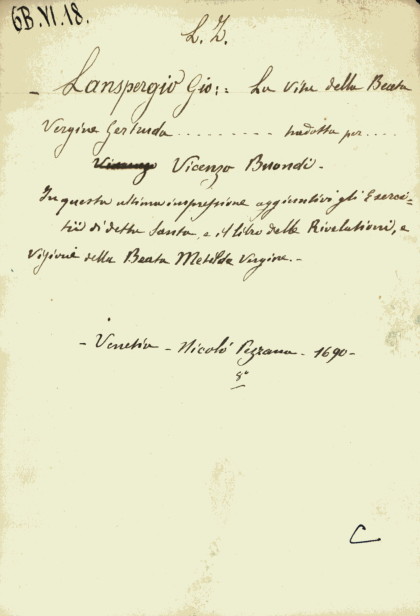 6B.VI.18.
L. Z.
- Lanspergio Gio:: La Vita della Beata
Vergine Gertruda ......... tradotta per ....
Vicenzo Buondi.
In questa ultima impressione aggiuntivi gli Eserci=
tii di detta Santa, e il libro delle Rivelationi, e
Visioni della Beata Metilda Vergine.-
- Venetia - Nicolò Pezzana - 1690-
8°
C